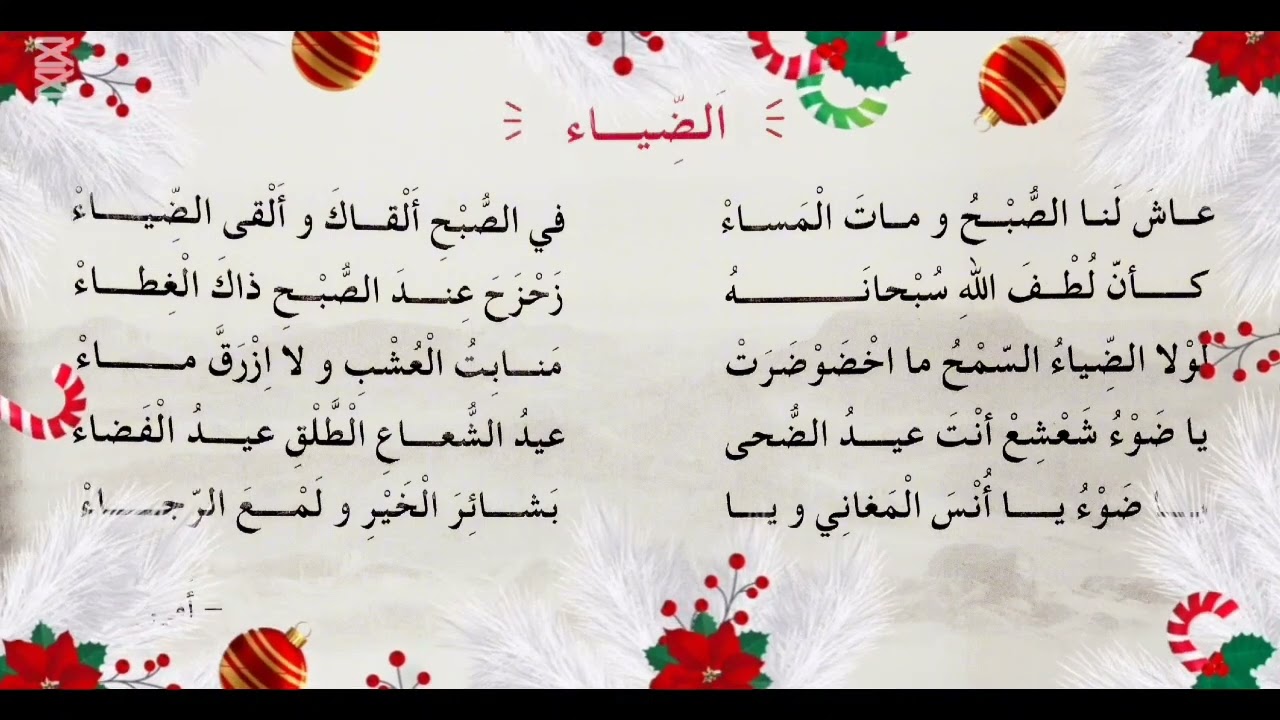 اَلضِّيـــاء
عـاشَ لَنـا الصُّبْـحُ و مـاتَ الْمَسـاءْ في الصُّبْحِ أَلْقـاكَ و أَلْقى الضِّيـــاءْ
كـأنّ لُطْـفَ اللهِ سُبْحانَـــهُ زَحْزَحَ عِنـدَ الصُّبْـحِ ذاكَ الْغِطـاءْ
لَوْلا الضِّياءُ السّمْحُ ما اخْضَوْضَرَتْ مَنـابِتُ الْعُشْبِ و لا اِزْرَقَّ مـــاءْ
يا ضَوْءُ شَعْشِعْ أنْتَ عيـدُ الضُّحى عيدُ الشُّعـاعِ الْطَّلْقِ عيـدُ الْفَضاءْ
يـا ضَوْءُ يـا أُنْسَ الْمَغاني و يـا بَشـائِرَ الْخَيْرِ و لَمْـعَ الرّجـاءْ